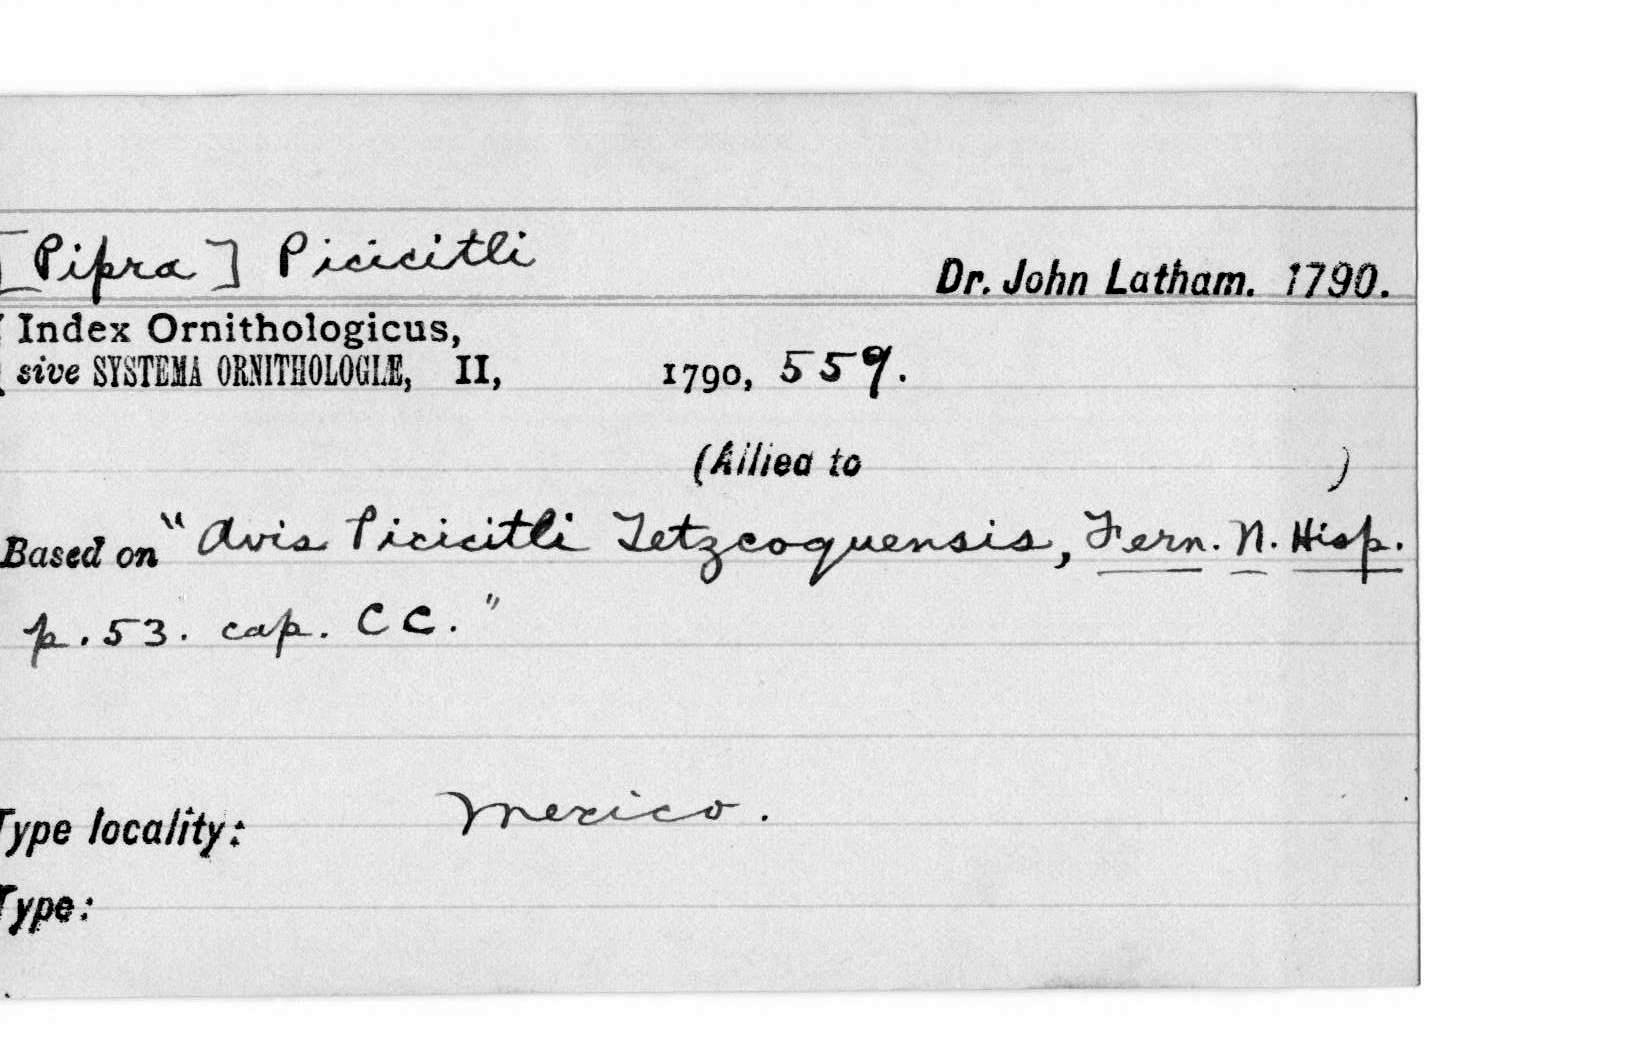 [Pipra] Picicitli
Dr. John Latham. 1790.
Index Ornithologicus,
sive SYSTEMA ORNITHOLOGIÆ, II, 1790, 559.
(Allied to )
Based on "Avis Picicitli Tetzcoquensis, Fern. N. Hisp.
p. 53. cap. CC."
Type locality: Mexico.
Type: